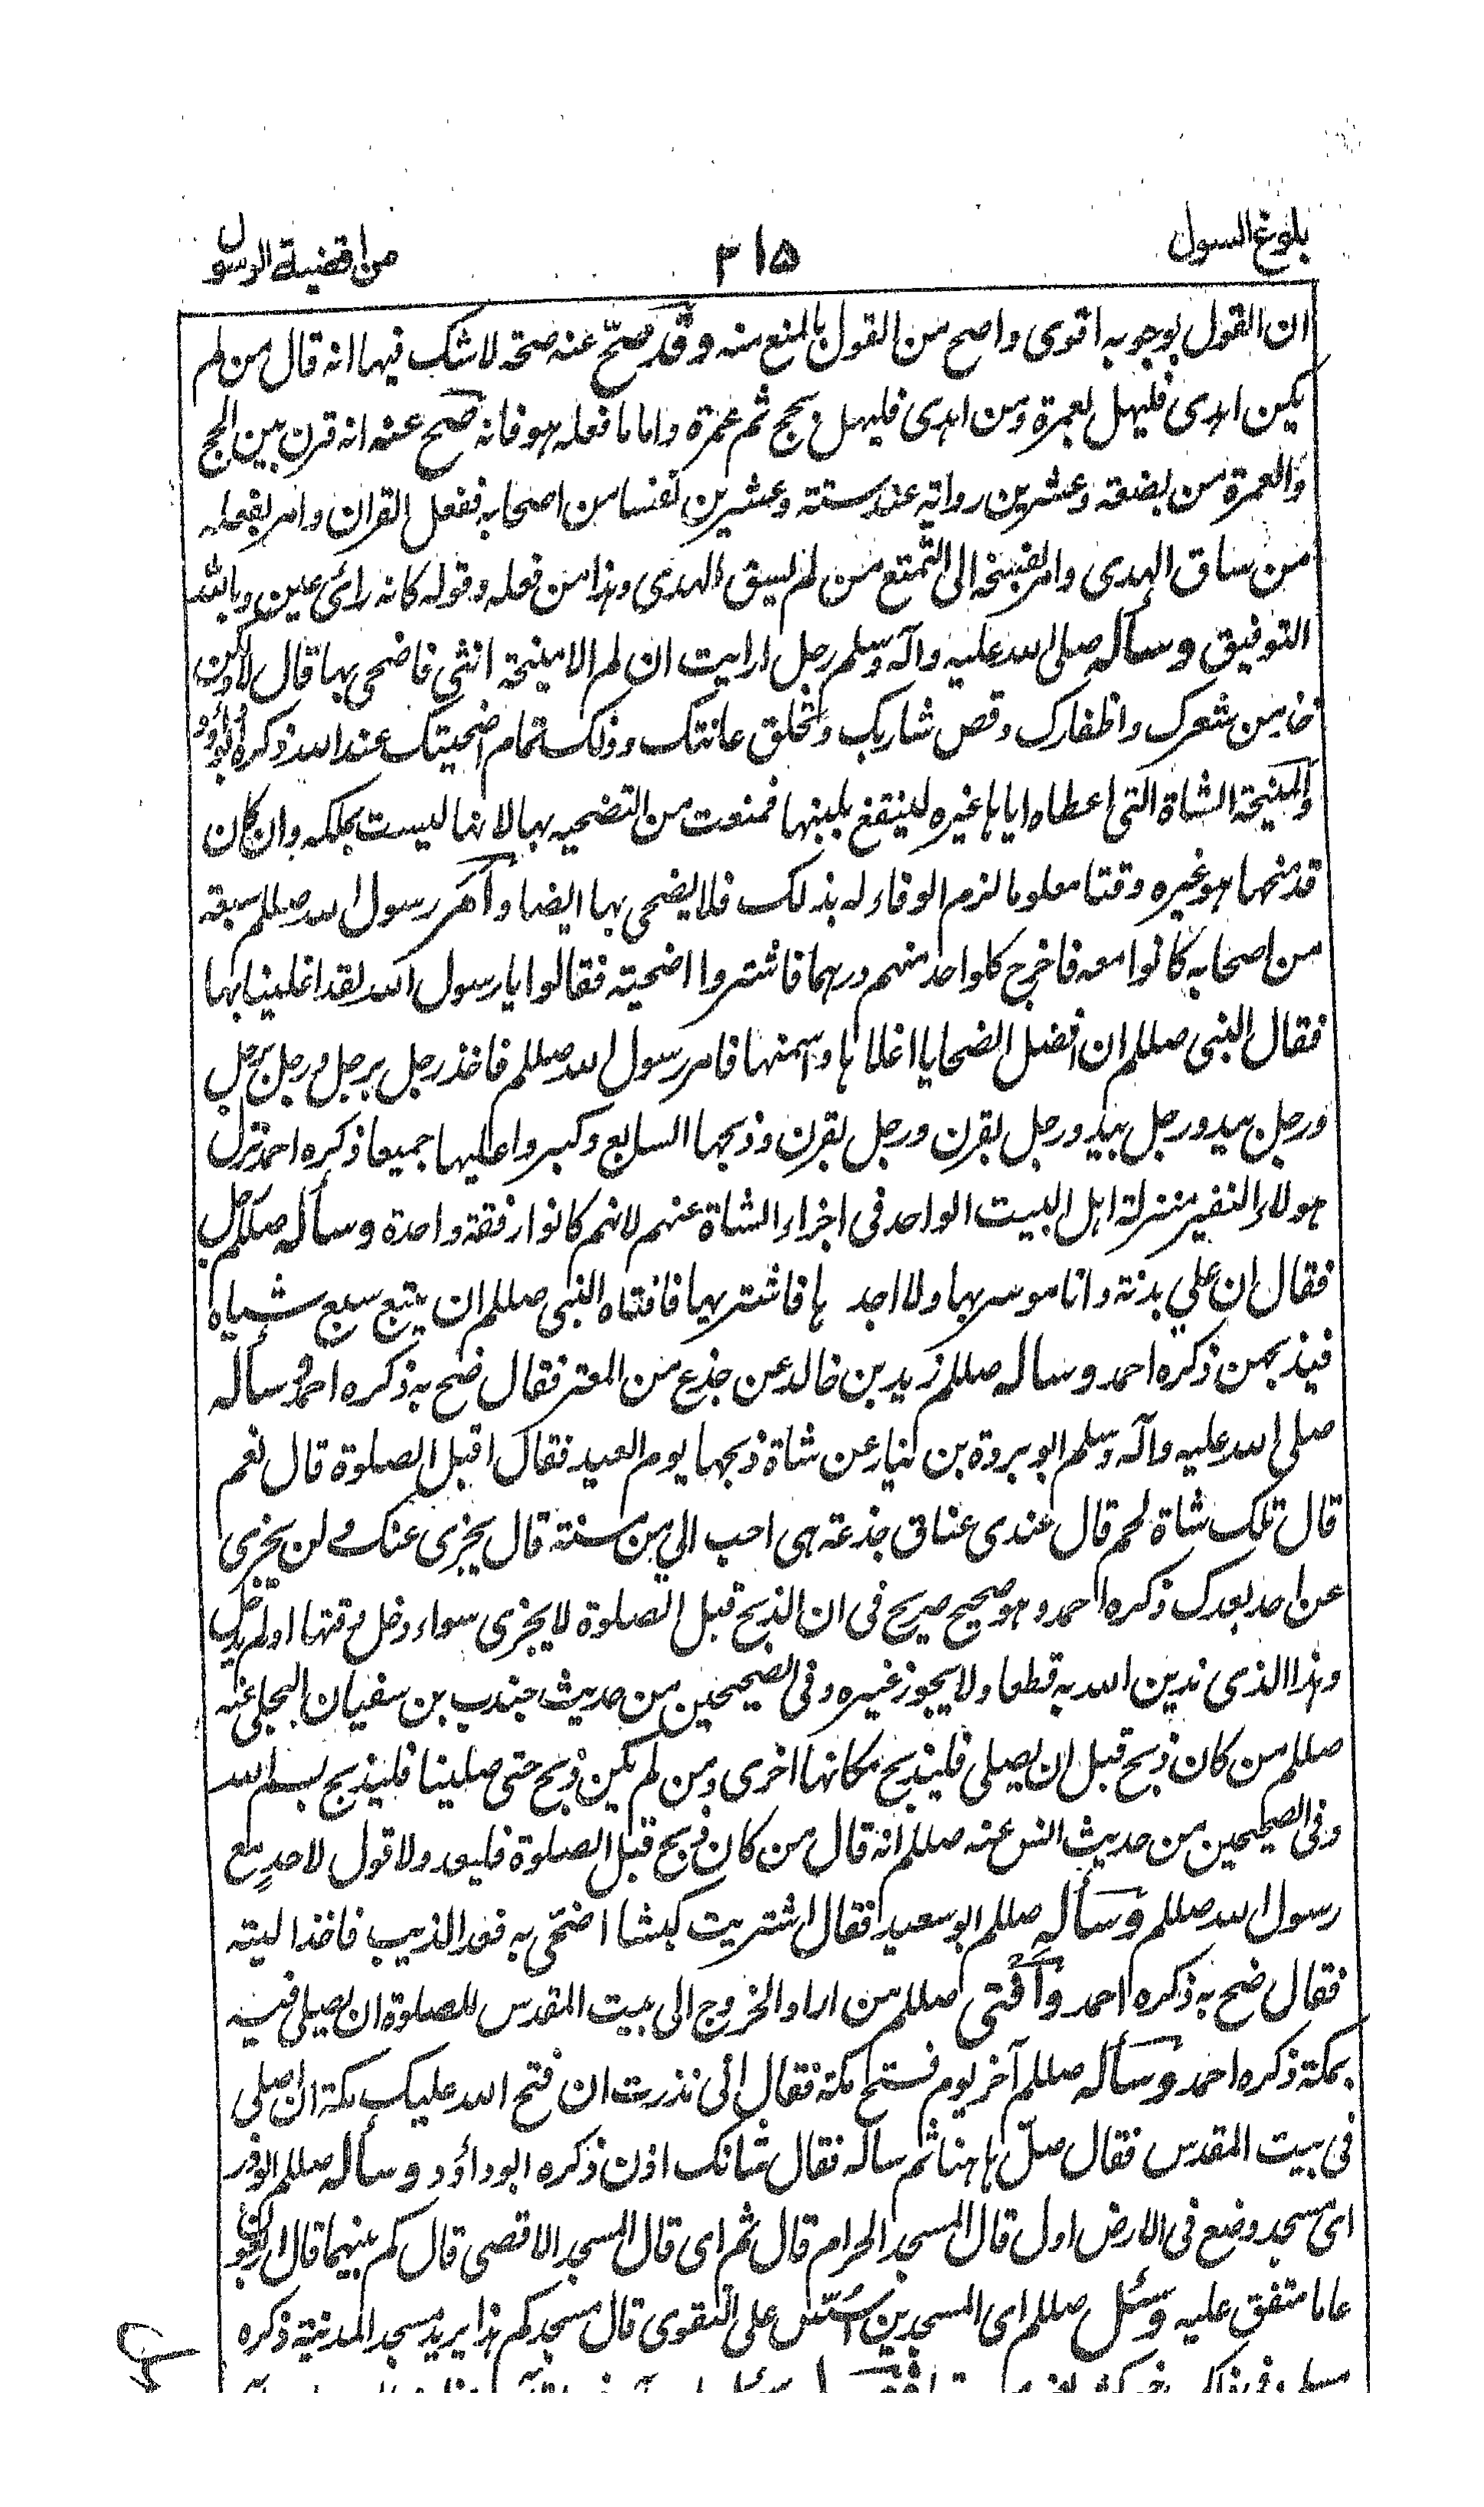 بلوغ السول
۲۱۵
من اقضية الرسول
ان القول بوجوبه اقوى واصح من القول بالمنع منه وقد صحّ عنه صحة لا شك فيها انه قال من لم
يكن اهدى فليهل بعمرة ومن اهدى فليهل بحج ثم عمرة واما ما فعله هو فانه صح عنه انه قرن بين الحج
والعمرة من بضعة وعشرين رواية عند ستة وعشرين نفسا من اصحابه ففعل القران وامر بفعله
من ساق الهدى وامر بفسخه الى التمتع من لم يسق الهدى وهذا من فعله وقوله كانه رائ عين وبالله
التوفيق وسأله صلى الله عليه وآله وسلم رجل ارايت ان لم الا منيحة انثى فاضحى بها قال لا ولكن
خذ من شعرك واظفارك وقص شاربك وتحلق عانتك وذلك تمام اضحيتك عند الله ذكره ابوداؤد
والمنيحة الشاة التى اعطاه اياها غيره لينتفع بلبنها فمنعت من التضحيه بها لانها ليست بملكه وان كان
قد منحها هو غيره وقتا معلوما لزم الوفاء له بذلك فلا يضحى بها ايضا وأمر رسول الله صللم سبعة
من اصحابه كانوا معه فاخرج كلواحد منهم درهما فاشتروا اضحية فقالوا يا رسول الله لقد اغلينا بها
فقال النبى صللم ان افضل الضحايا اغلاها واسمنها فامر رسول الله صللم فاخذ رجل برجل ورجل برجل
ورجل بيد ورجل بيد ورجل بقرن ورجل بقرن وذبحها السابع وكبروا عليها جميعا ذكره احمد نزل
هولاء النفر منزلة اهل البيت الواحد فى اجزاء الشاة عنهم لانهم كانوا رفقة واحدة وسأله صللم رجل
فقال ان علي بدنة وانا موسر بها ولا اجد ها فاشتريها فافتاه النبى صللم ان يبتع سبع شياه
فيذبحهن ذكره احمد وساله صللم زيد بن خالد عن جذع من المعز فقال ضح به ذكره احمد وسأله
صلى الله عليه وآله وسلم ابو بروة بن نيار عن شاة ذبحها يوم العيد فقال اقبل الصلوة قال نعم
قال تلك شاة لحم قال عندى عناق جذعة هى احب الي من مسنة قال يجزى عنك ولن يجزى
عن احد بعدك ذكره احمد وهو صحيح صريح فى ان الذبح قبل الصلوة لا يجزى سواء دخل وقتها اولم يدخل
وهذا الذى ندين الله به قطعا ولا يجوز غيره وفى الصحيحين من حديث جندب بن سفيان البجلى عنه
صللم من كان ذبح قبل ان يصلى فليذبح مكانها اخرى ومن لم يكن ذبح حتى صلينا فليذبح بسم الله
وفى الصحيحين من حديث انس عنه صللم انه قال من كان ذبح قبل الصلوة فليعد ولا قول لاحد مع
رسول الله صللم وسأله صللم ابو سعيد فقال اشتريت كبشا اضحّى به فعد الذيب فاخذ اليته
فقال ضح به ذكره احمد وأفتى صللم من اراد الخروج الى بيت المقدس للصلوة ان يصلى فيه
بمكة ذكره احمد وسأله صللم آخر يوم فتح مكة فقال انى نذرت ان فتح الله عليك مكة ان اصلى
فى بيت المقدس فقال صلّ هاهنا ثم ساله فقال شانك اذن ذكره ابوداؤد وسأله صللم ابوذر
اى مسجد وضع فى الارض اول قال المسجد الحرام قال ثم اى قال المسجد الاقصى قال كم بينهما قال اربعون
عاما متفق عليه وسئل صللم اى المسجدين اُسّس على التقوى قال مسجدكم هذا يريد مسجد المدنية ذكره